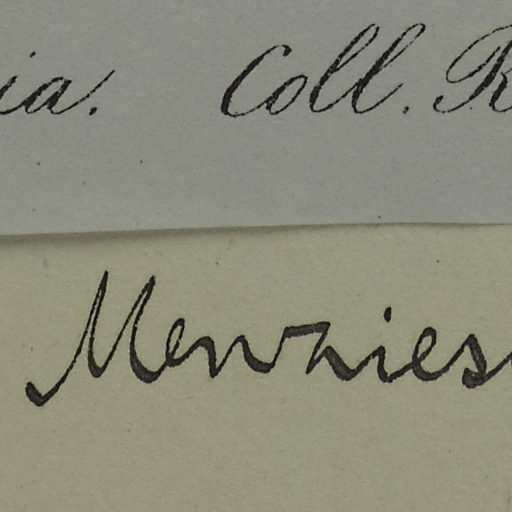 ia. Coll. R
Menzies